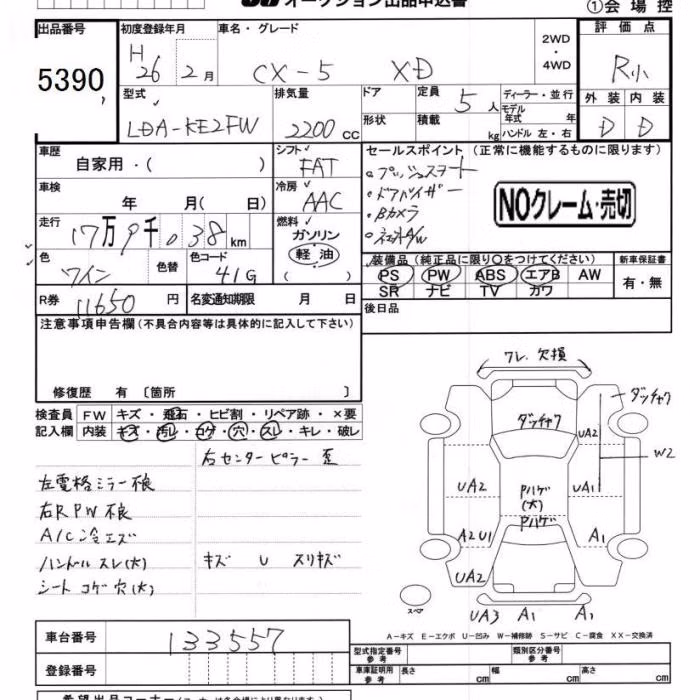 オークション出品申込書
①会場控
出品番号 初度登録年月 車名・グレード 評価点
5390 H26 2月 CX-5 XD 2WD・4WD R小
型式 排気量 ドア 定員 5人 ディーラー・並行 外装 内装
LDA-KE2FW 2200cc 形状 積載 kg モデル年式 年 ハンドル 左・右 D D
車歴 シフト セールスポイント (正常に機能するものに限ります)
自家用・( ) FAT 。プッシュスタート
車検 冷房 。ドアバイザー
年 月( 日) AAC 。Bカメラ
NOクレーム・売切
走行 燃料 。社外A/W
17万9千038km ガソリン
色 色替 色コード 軽油
ワイン 41G ( )
装備品 (純正品に限り○をつけてください) 新車保証書
PS PW ABS エアB AW 有・無
SR ナビ TV カワ
R券 11650円 名変通知期限 月 日
後日品
注意事項申告欄 (不具合内容等は具体的に記入して下さい)
修復歴 有 〔箇所 〕
検査員 FW キズ・飛石・ヒビ割・リペア跡・×要
記入欄 内装 キズ・汚レ・コゲ・穴・スレ・キレ・破レ
右センターピラー歪
左電格ミラー不良
右RPW不良
A/C冷エズ
ハンドルスレ(大) キズ U スリキズ
シートコゲ穴(大)
ワレ、欠損
ダッチャク
ダッチャク
UA2
W2
UA2 Pハゲ(大) UA1
Pハゲ
A2U1 A1
UA2
スペア
UA3 A1 A1
A-キズ E-エクボ U-凹み W-補修跡 S-サビ C-腐食 XX-交換済
車台番号 133557
登録番号
型式指定番号 参考 類別区分番号 参考
車庫証明用 参考 長さ cm 幅 cm 高さ cm
希望出品コーナー